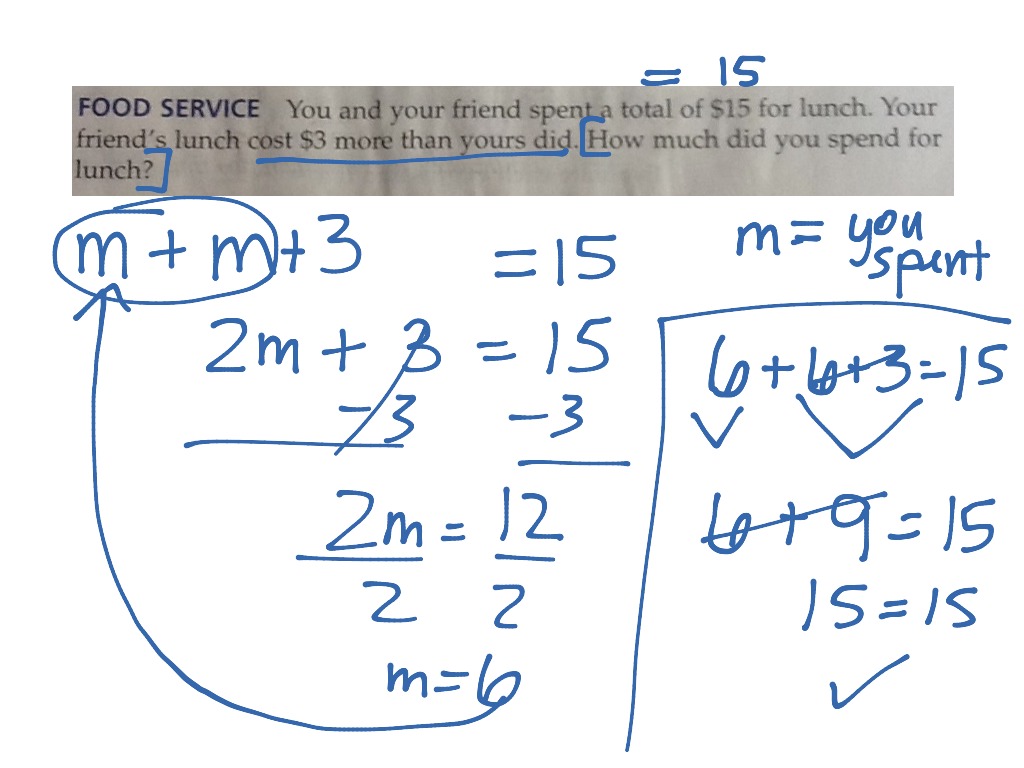 = 15
FOOD SERVICE You and your friend spent a total of $15 for lunch. Your
friend's lunch cost $3 more than yours did. How much did you spend for
lunch?
m + m + 3 = 15
m = you
spent
2m + 3 = 15
-3 -3
2m = 12
2 2
m = 6
6 + 6 + 3 = 15
6 + 9 = 15
15 = 15